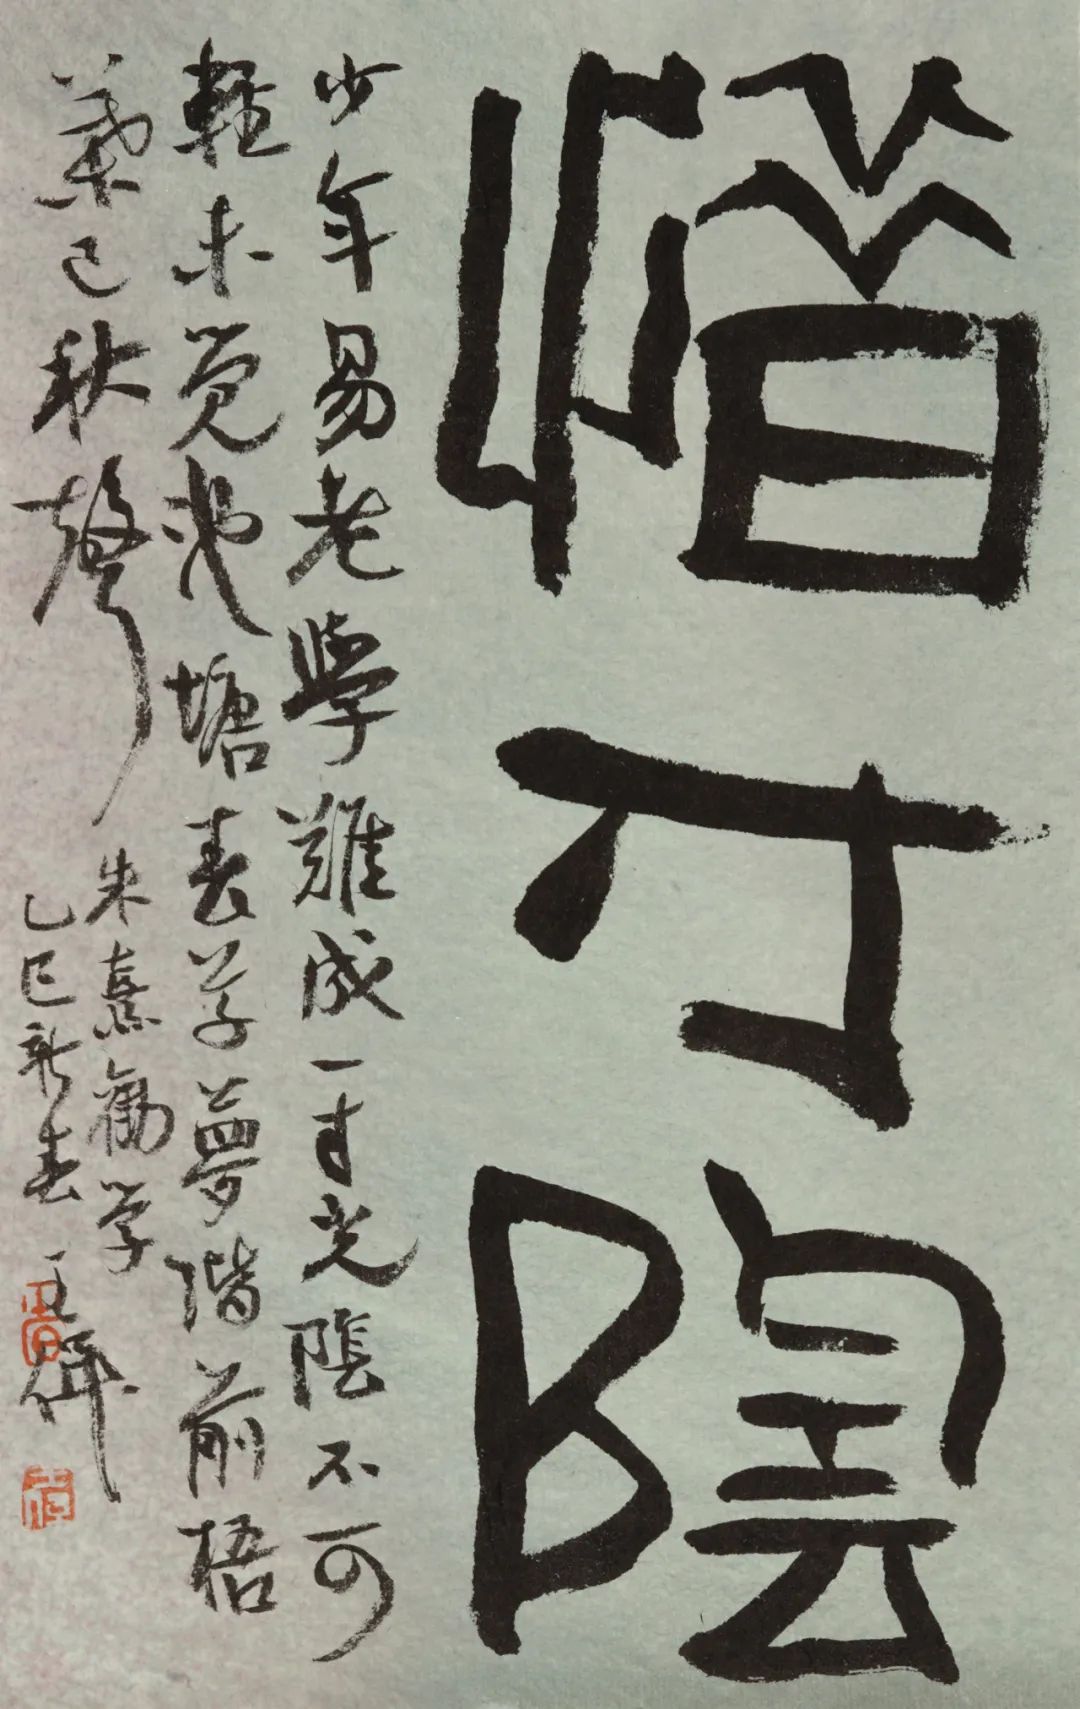 惜寸陰
少年易老學難成一寸光陰不可
輕未觉池塘春草夢階前梧
葉已秋聲
朱熹勸学
乙巳新春 王鏞